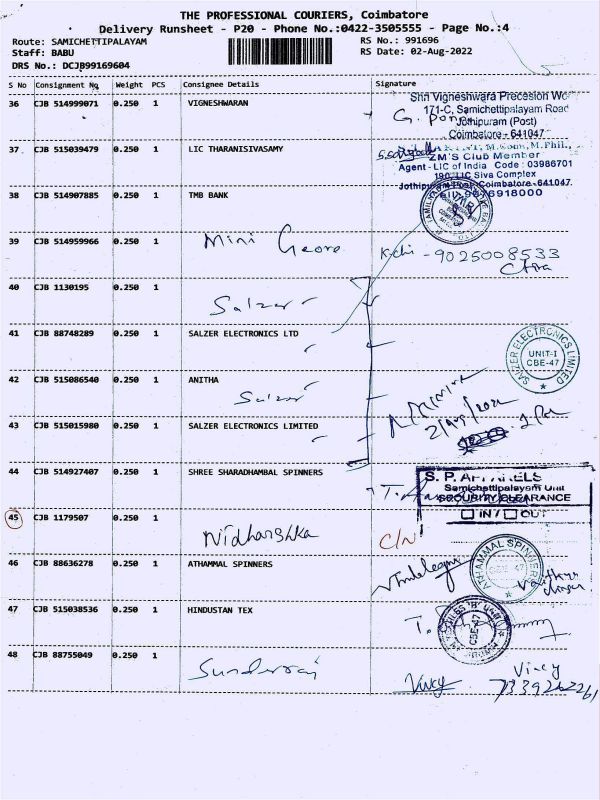 THE PROFESSIONAL COURIERS, Coimbatore
Delivery Runsheet - P20 - Phone No.:0422-3505555 - Page No.:4
Route: SAMICHETTIPALAYAM RS No.: 991696
Staff: BABU RS Date: 02-Aug-2022
DRS No.: DCJB99169604
S No Consignment No Weight PCS Consignee Details Signature
36 CJB 514999071 0.250 1 VIGNESHWARAN
Shri Vigneshwara Precesion
171-C, Samichettipalayam Road
Jothipuram (Post)
Coimbatore - 641047
37 CJB 515039479 0.250 1 LIC THARANISIVASAMY
M.Com, M.Phil.,
ZM'S Club Member
Agent - LIC of India Code : 03986701
190, LIC Siva Complex
Coimbatore-641047.
38 CJB 514907885 0.250 1 TMB BANK
39 CJB 514959966 0.250 1 Mini Geore
9025008533
40 CJB 1130195 0.250 1 Salzer
41 CJB 88748289 0.250 1 SALZER ELECTRONICS LTD
SALZER ELECTRONICS LIMITED
UNIT-I
CBE-47
42 CJB 515086540 0.250 1 ANITHA
Salzer
43 CJB 515015980 0.250 1 SALZER ELECTRONICS LIMITED
44 CJB 514927407 0.250 1 SHREE SHARADHAMBAL SPINNERS
S. P. APPARELS
Samichettipalayam Unit
SECURITY CLEARANCE
IN / OUT
45 CJB 1179507 0.250 1 Nidharshka C/N
46 CJB 88636278 0.250 1 ATHAMMAL SPINNERS
ATHAMMAL SPINNERS
47 CJB 515038536 0.250 1 HINDUSTAN TEX
CBE-47
48 CJB 88755049 0.250 1 Sunderraj
Vincy